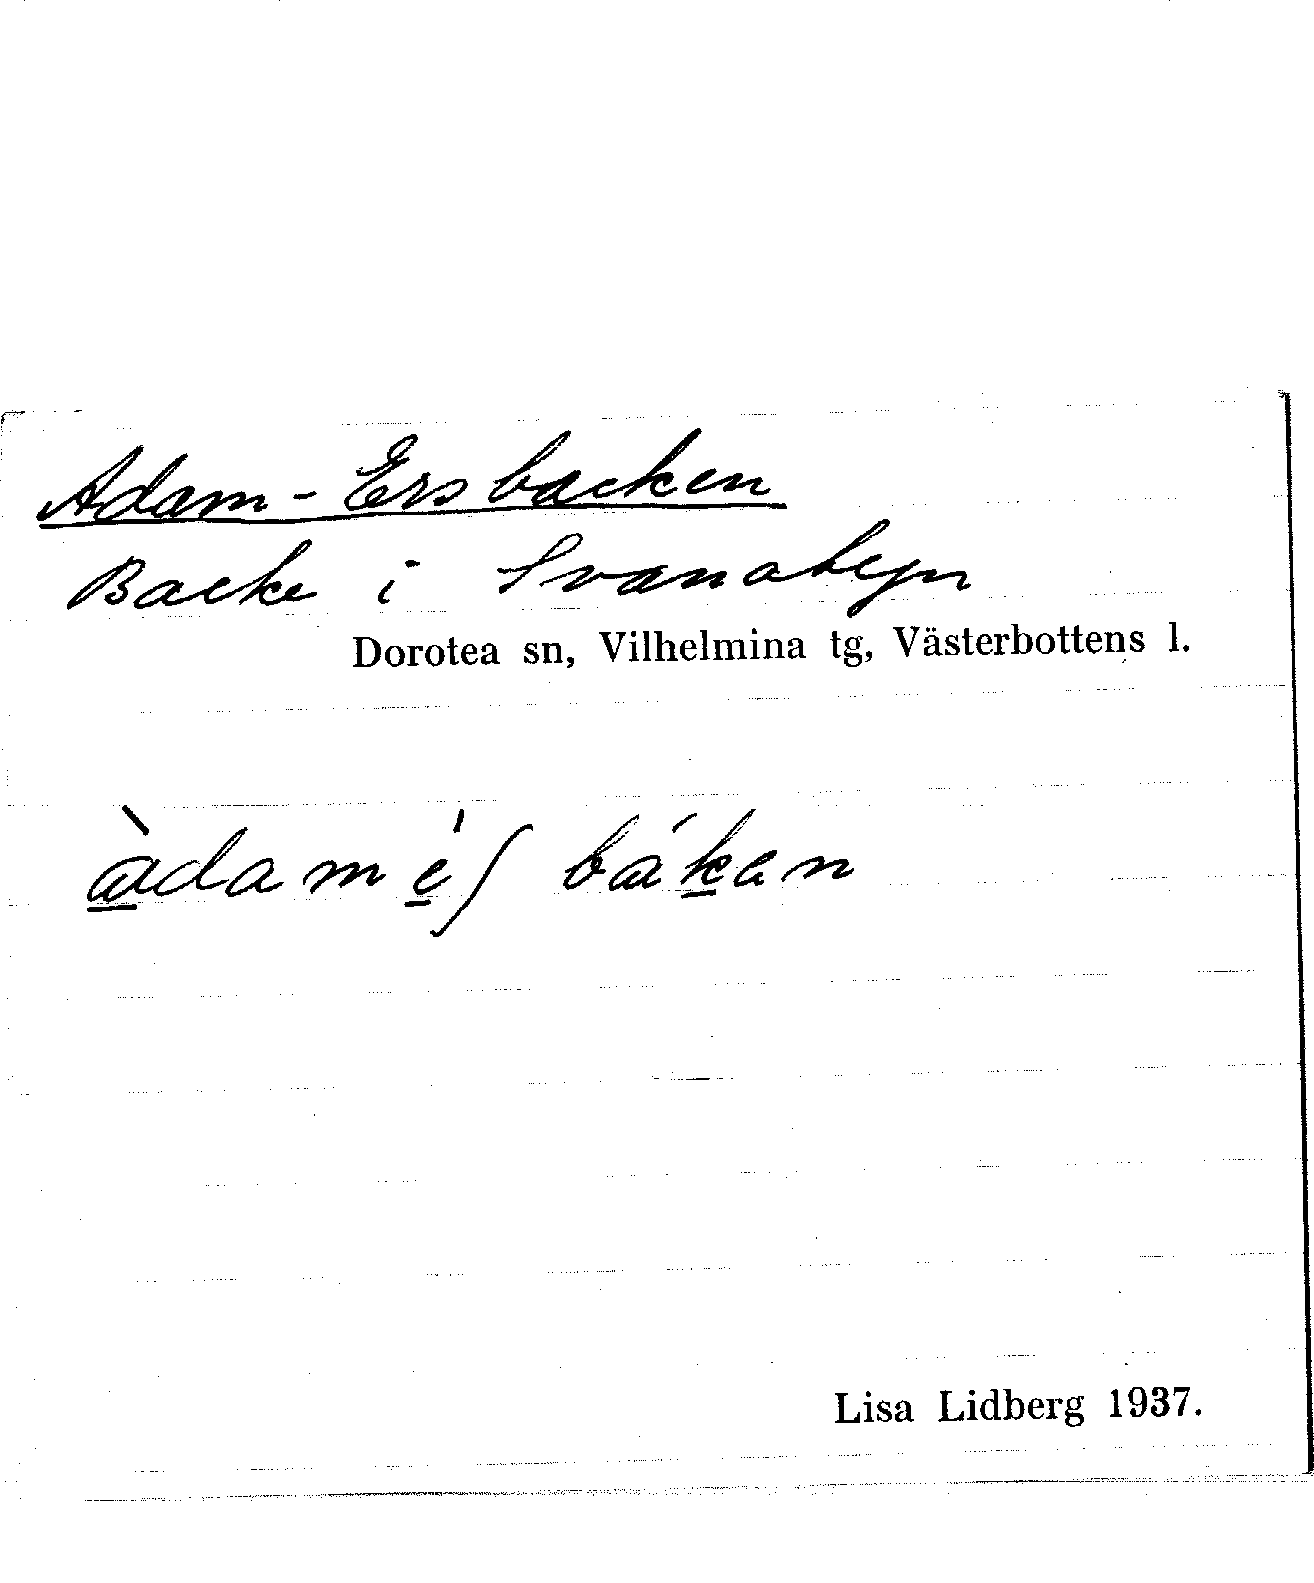 Adam-Ersbacken
Backe i Svanabyn
Dorotea sn, Vilhelmina tg, Västerbottens l.
àdamé̱ʃ bákan
Lisa Lidberg 1937.